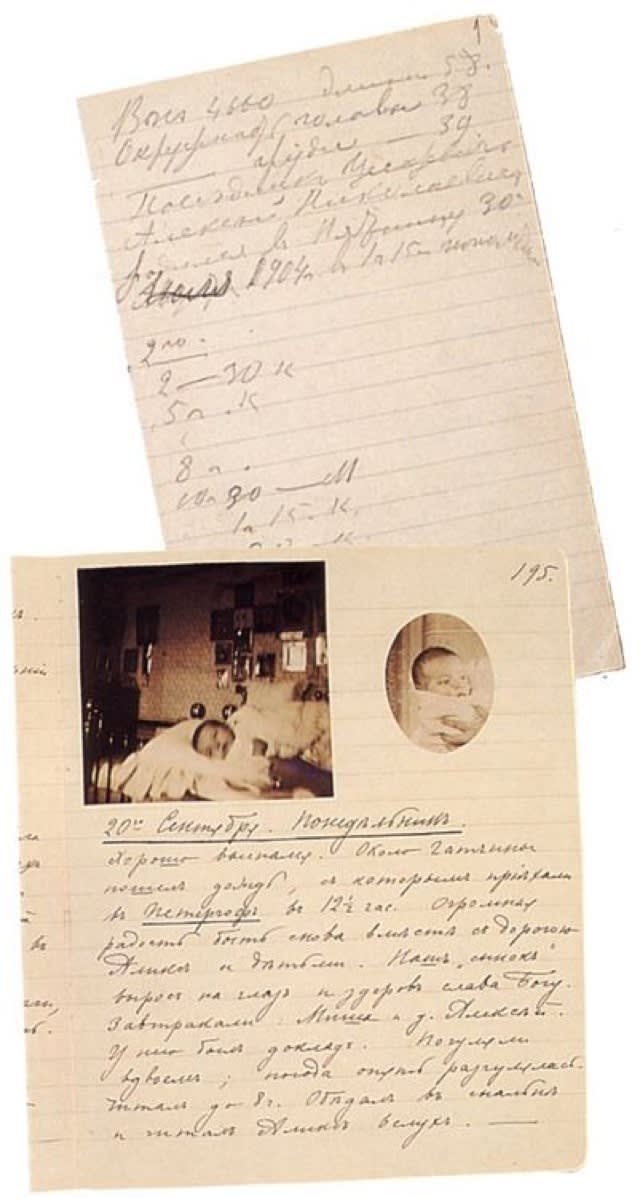 1
Весъ 4660 длина 58.
Окружность головы 38
груди — 39
Наслѣдникъ Цесаревичъ
Алексѣй Николаевичъ
родился в Пятницу 30го
Июля 1904г. в 1 ч 15 м
2 — 30 к
5 ч. к
8 ч.
10 ч 30 — М
1 ч 15 к.
195.
20го Сентября. Понедѣльникъ.
Хорошо выспался. Около Гатчины
пошелъ дождь, съ которымъ приѣхали
въ Петергофъ въ 12½ час. Огромная
радость быть снова вмѣстѣ съ дорогою
Аликсъ и дѣтьми. Нашъ „сынокъ"
выросъ на глазъ и здоровъ слава Богу.
Завтракали: Миша и д. Алексѣй.
У него былъ докладъ. Погуляли
вдвоемъ; погода опять разгулялась.
Читалъ до 8 ч. Обѣдали въ спальнѣ
и читалъ Аликсъ вслухъ. —